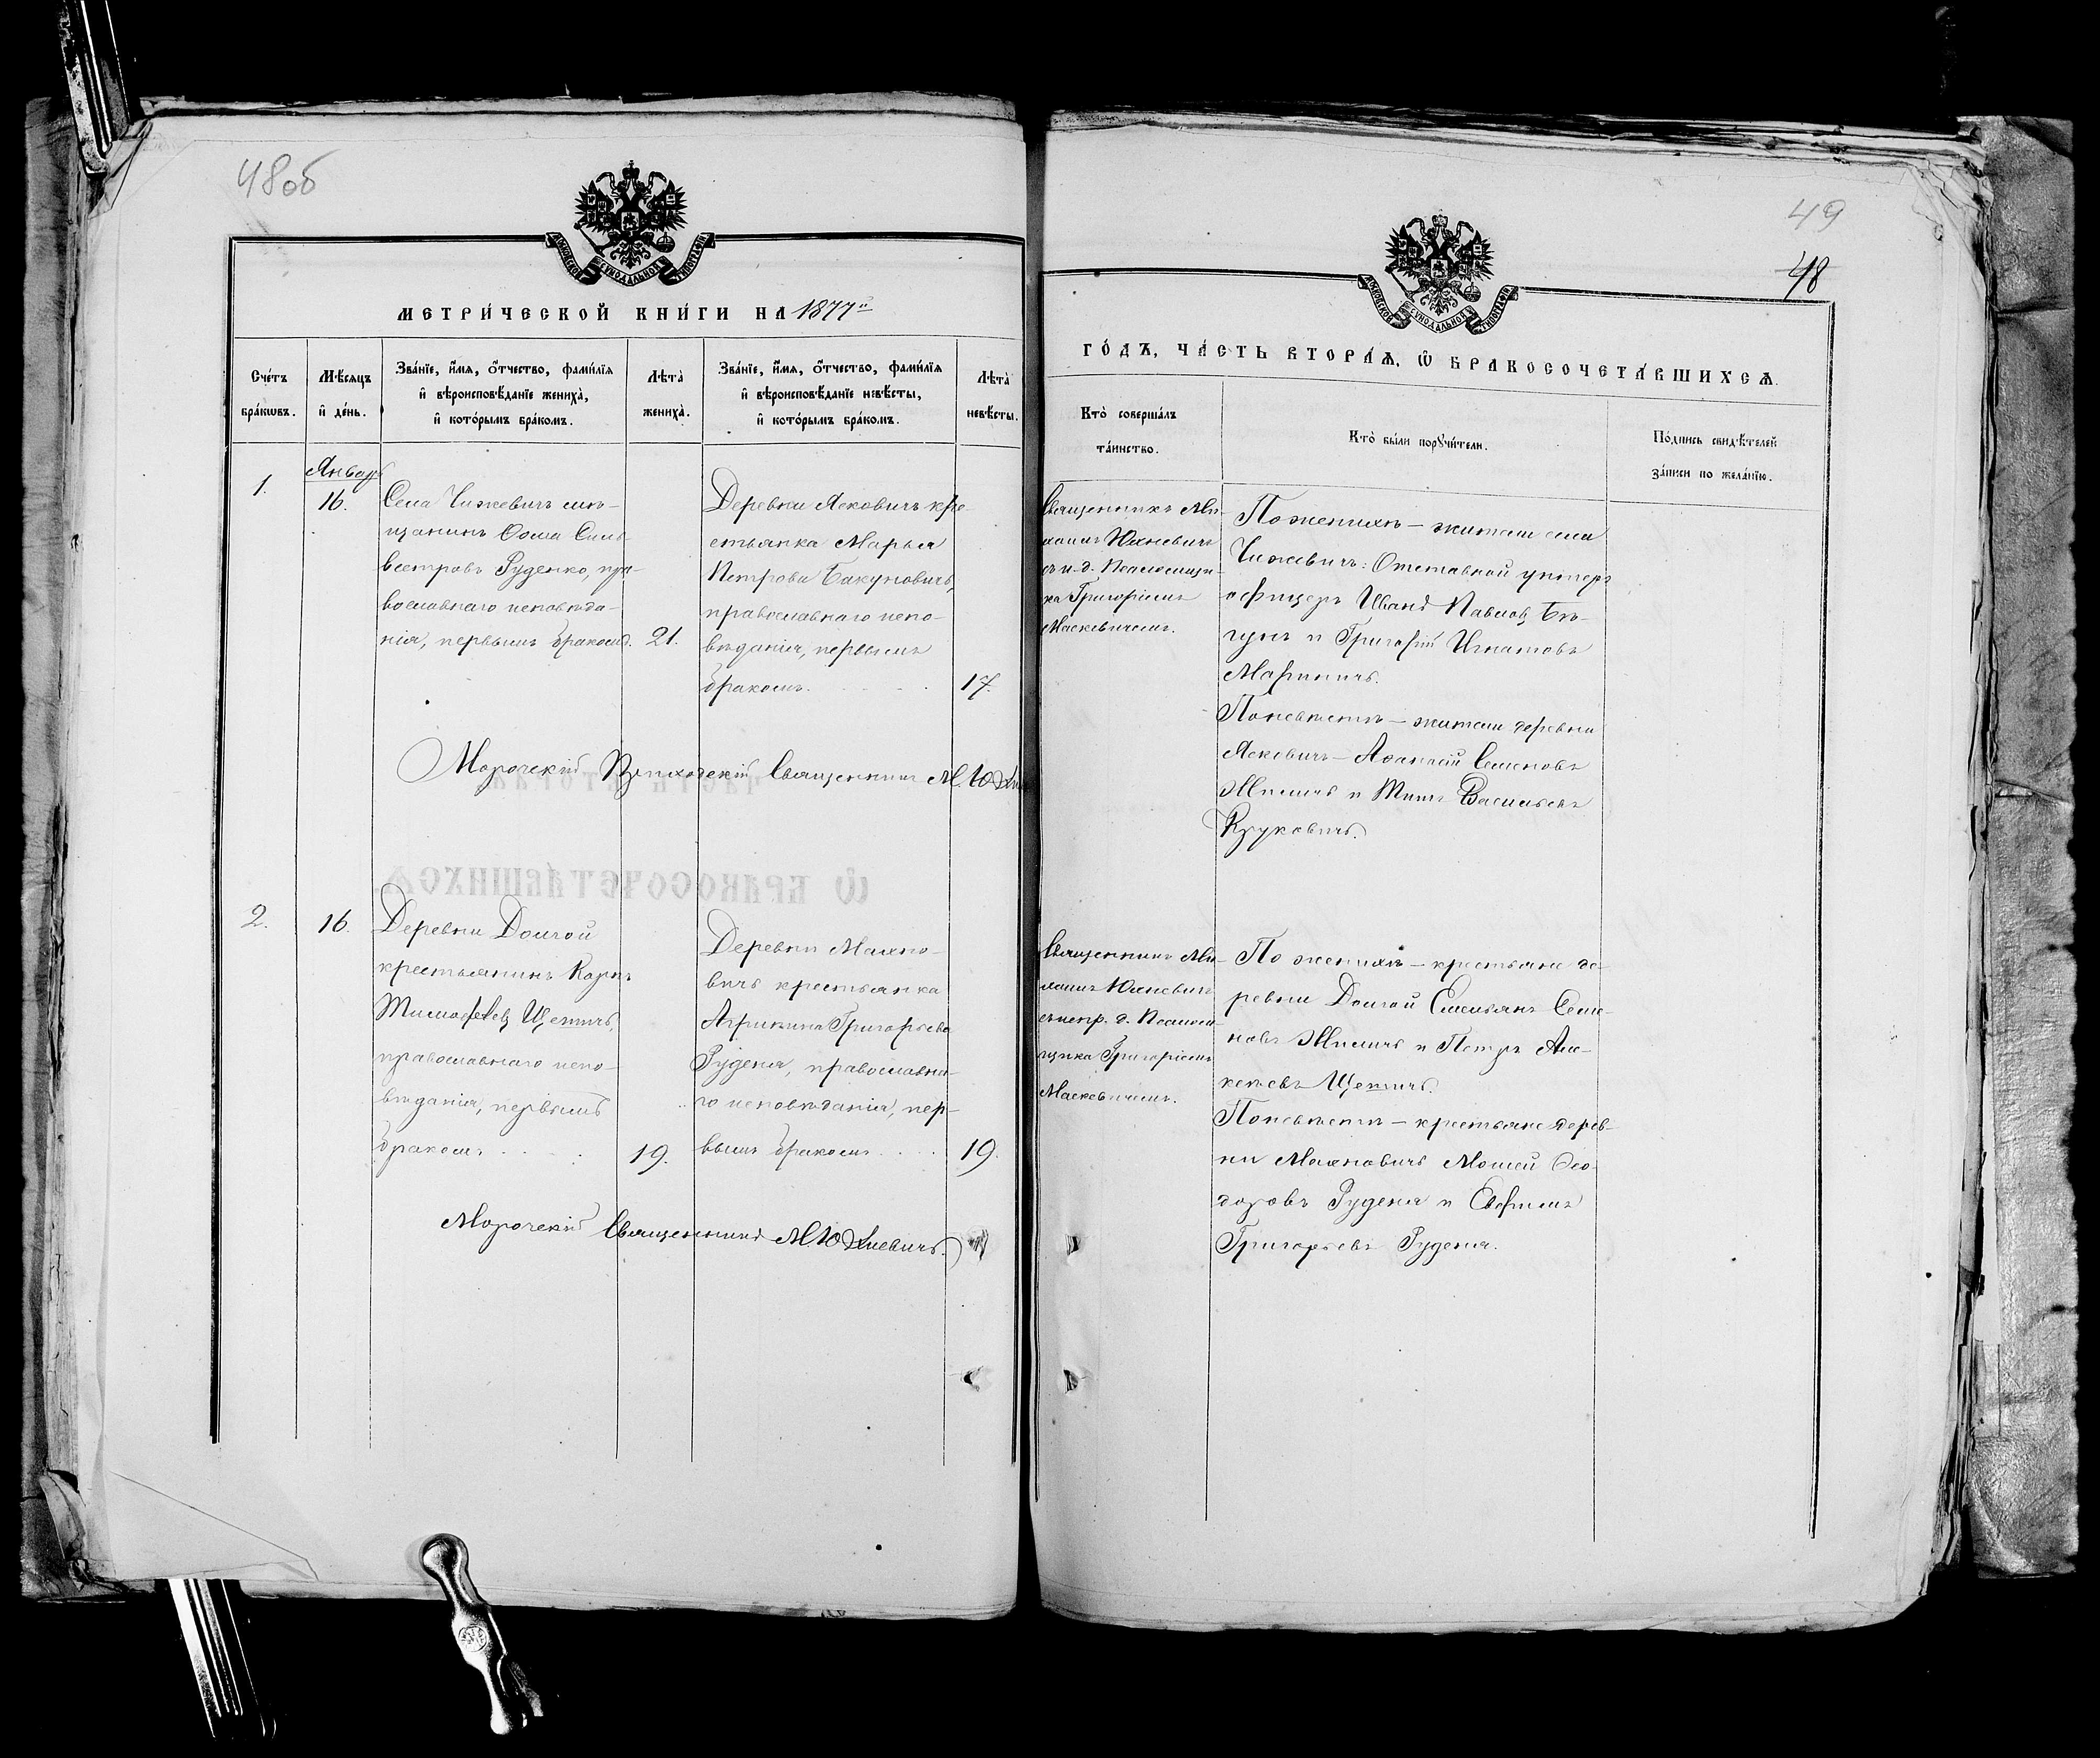 48об
МОСКОВСКОЙ СѴНОДАЛЬНОЙ ТИПОГРАФІИ
МЕТРИ́ЧЕСКОЙ КНИ́ГИ НА 1877й
Сче́тъ бра́кѡвъ.
Мѣ́сѧцъ и҆ де́нь.
Зва́нїе, и҆́мѧ, ѻ҆́тчество, фами́лїѧ
и҆ вѣроисповѣ́данїе жениха̀,
и҆ кото́рымъ бра́комъ.
Лѣта̀ жениха̀.
Зва́нїе, и҆́мѧ, ѻ҆́тчество, фами́лїѧ
и҆ вѣроисповѣ́данїе невѣ́сты,
и҆ кото́рымъ бра́комъ.
Лѣта̀ невѣ́сты.
1.
Январь
16.
Села Чижевичъ мѣ-
щанинъ Ѳома Силь-
вестровъ Руденко, пра-
вославнаго исповѣда-
нія, первымъ бракомъ.
21.
Деревни Ясковичъ кре-
стьянка Марья
Петрова Бакуновичъ,
православнаго испо-
вѣданія, первымъ
бракомъ.
17.
Морочскій Приходскій Священникъ М. Юхне
2.
16.
Деревни Долгой
крестьянинъ Карпъ
Тимофеевъ Щетичъ,
православнаго испо-
вѣданія, первымъ
бракомъ
19.
Деревни Махно-
вичъ крестьянка
Агрипина Григорьева
Руденя, православна-
го исповѣданія, пер-
вымъ бракомъ
19.
Морочскій Священникъ М. Юхневичъ.
49
48
МОСКОВСКОЙ СѴНОДАЛЬНОЙ ТИПОГРАФІИ
ГО́ДЪ, ЧА́СТЬ ВТОРА́Ѧ, Ѡ҆ БРАКОСОЧЕТА́ВШИХСѦ.
Кто̀ соверша́лъ
та́инство.
Кто̀ бы́ли порꙋчи́тели.
По́дпись свидѣ́телей
за́писи по жела́нїю.
Священникъ Ми-
хаилъ Юхневичъ
съ и. д. Псаломщи-
ка Григоріемъ
Маскевичемъ.
По женихѣ – жители села
Чижевичъ: Отставной унтеръ
офицеръ Иванъ Павловъ Бѣ-
гунъ и Григорій Игнатовъ
Мариничъ.
По невѣстѣ – жители деревни
Ясковичъ – Семеновъ
Жиличъ и Титъ Васильевъ
Круковичъ.
Священникъ Ми-
хаилъ Юхневичъ
съ испр. д. Псалом-
щика Григоріемъ
Маскевичемъ.
По женихѣ – крестьяне де-
ревни Долгой Емельянъ Семе-
новъ Жиличъ и Петръ Але-
ксѣевъ Щетичъ.
По невѣстѣ – крестьяне дерев-
ни Махновичъ Мойсей Ѳео-
доровъ Руденя и Евфимъ
Григорьевъ Руденя.